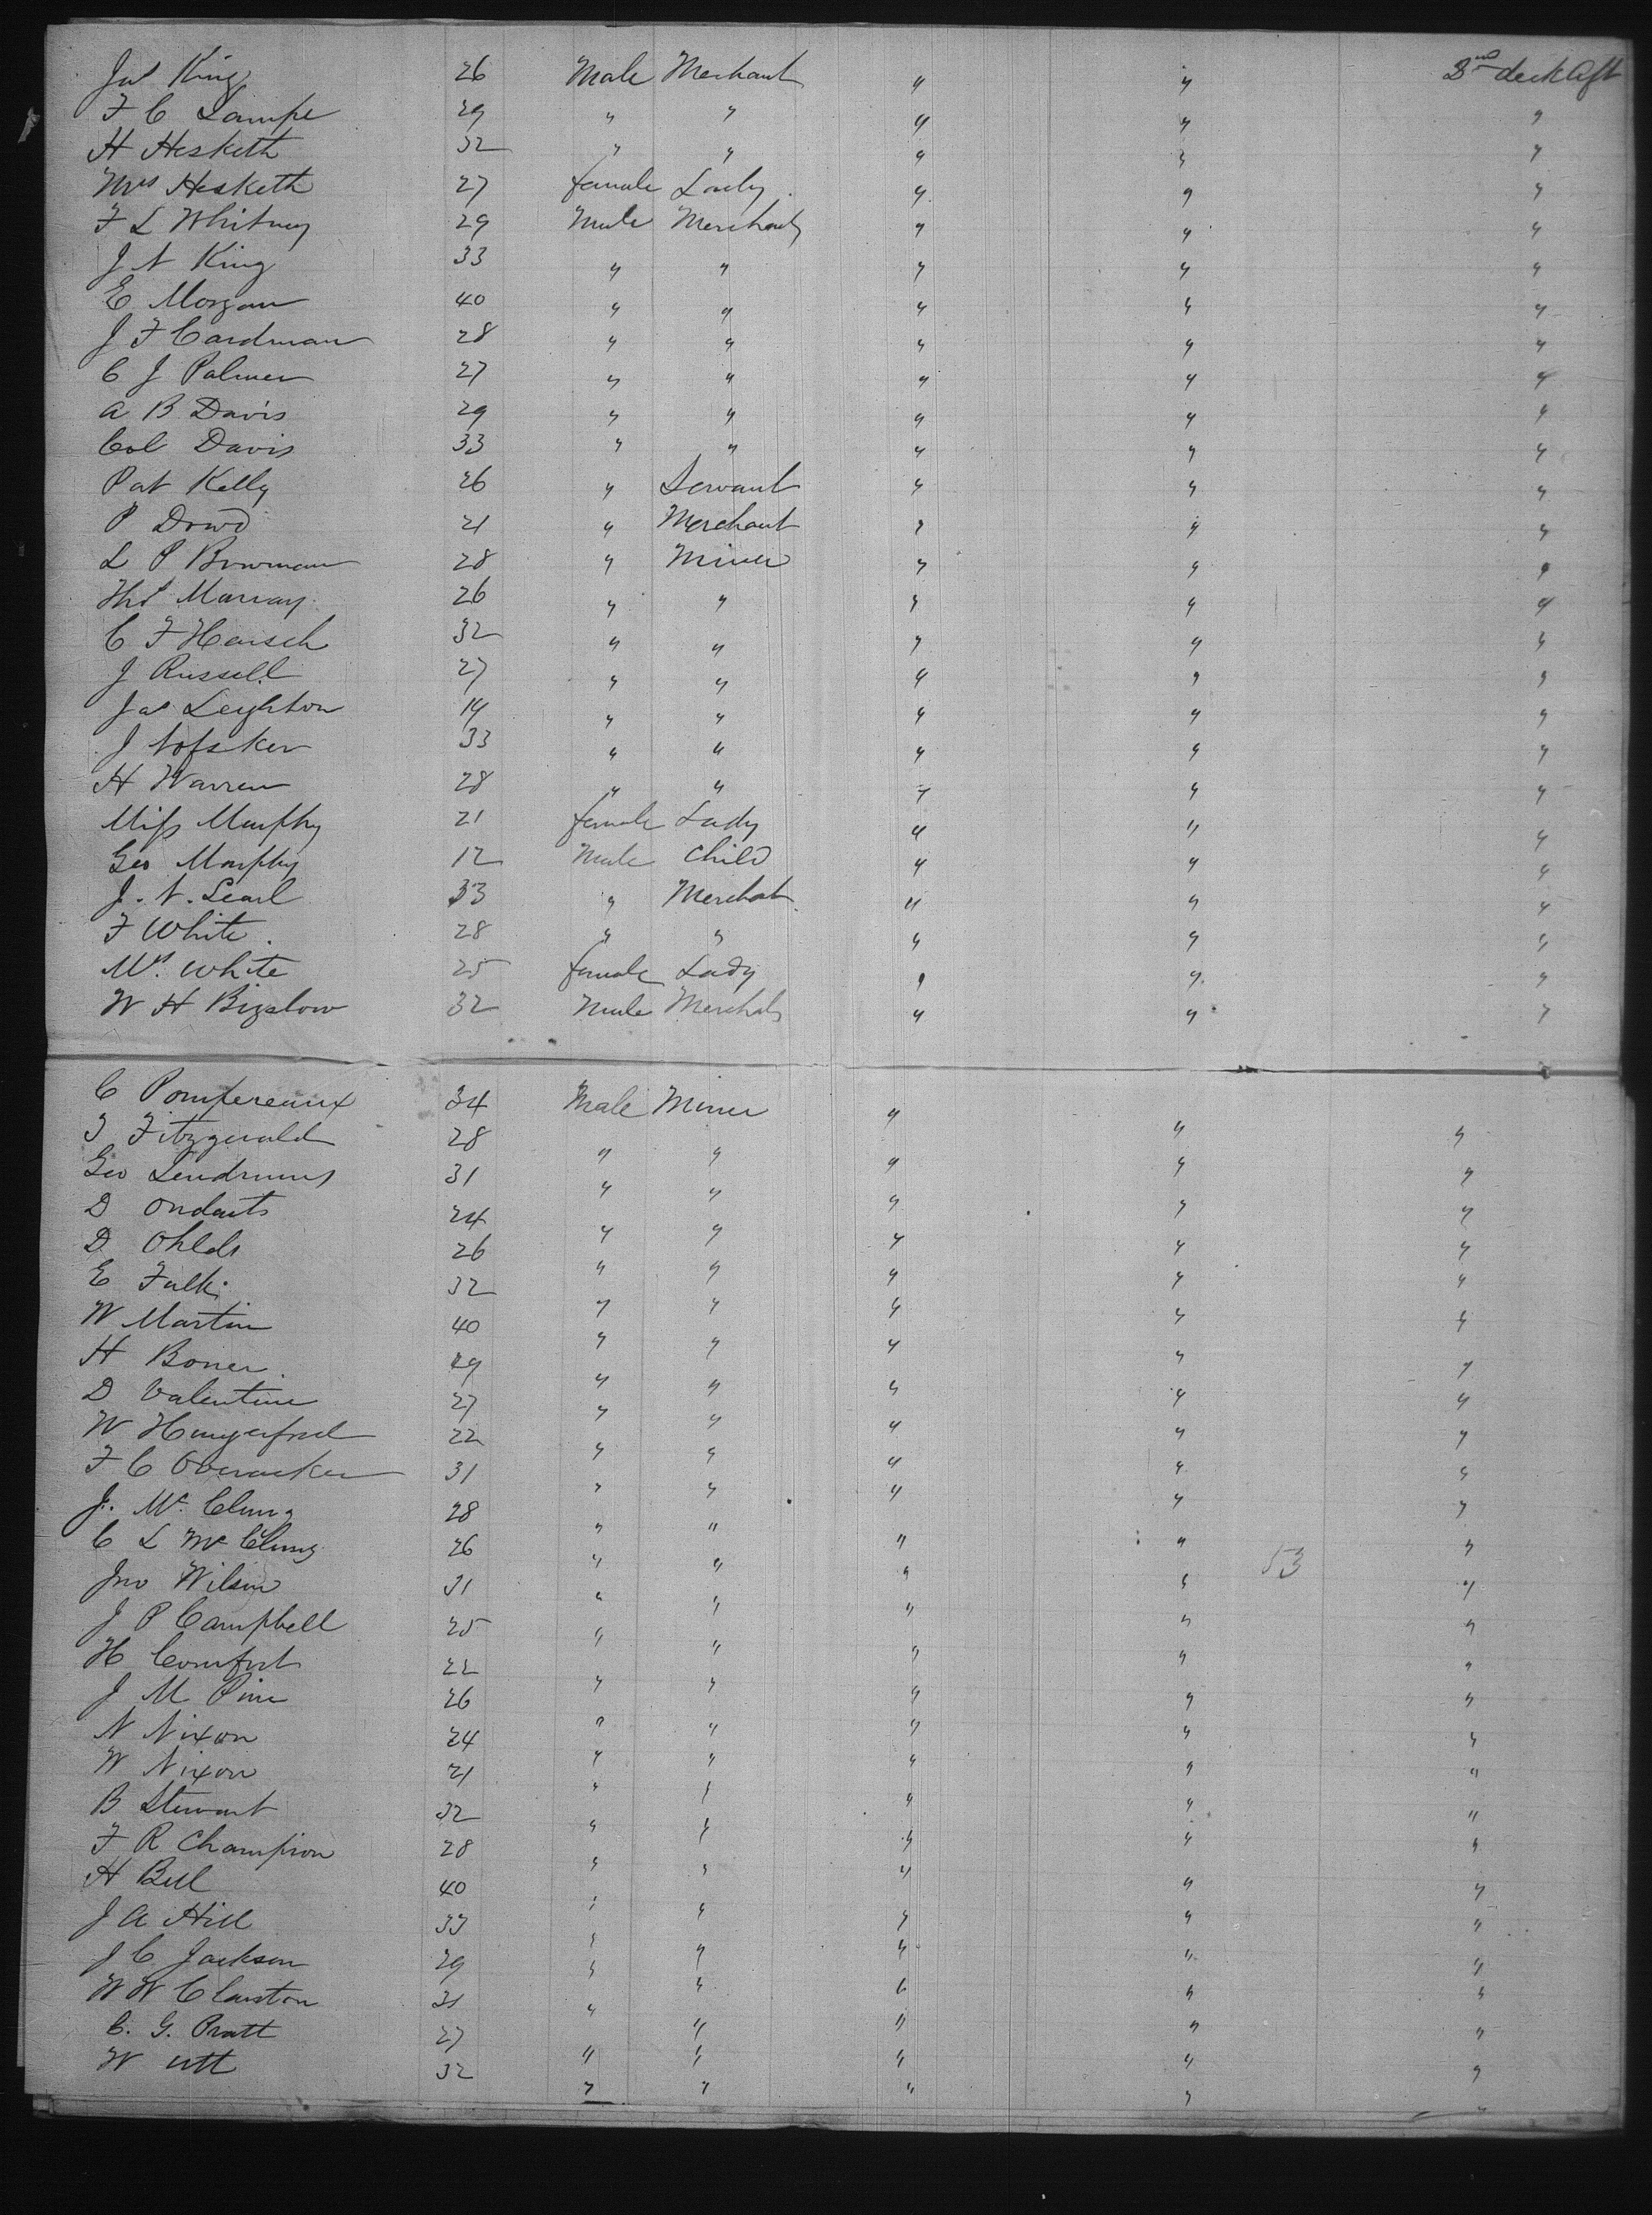 Jas King 26 Male Merchant " " 2nd deck Aft
F C Lampe 29 " " " " "
H Hesketh 32 " " " " "
Mrs Hesketh 27 female Lady " " "
F L Whitney 29 Male Merchant " " "
J N King 33 " " " " "
E Morgan 40 " " " " "
J F Cardman 28 " " " " "
C J Palmer 27 " " " " "
A B Davis 29 " " " " "
Col Davis 33 " " " " "
Pat Kelly 26 " Servant " " "
P Dowd 21 " Merchant " " "
L P Bowman 28 " Miner " " "
Ths Murray 26 " " " " "
C F Hensch 32 " " " " "
J Russell 27 " " " " "
Jas Leighton 14 " " " " "
J Nofsker 33 " " " " "
H Warren 28 " " " " "
Miss Murphy 21 female Lady " " "
Geo Murphy 12 Male Child " " "
J. N. Searl 33 " Merchat " " "
F White 28 " " " " "
Ms. White 25 female Lady " " "
W H Bigelow 32 Male Merchat " " "
C Pompereaux 34 Male Miner " " "
J Fitzgerald 28 " " " " "
Geo Lendrums 31 " " " " "
D 24 " " " " "
D Ohlds 26 " " " " "
E Falk 32 " " " " "
W Martin 40 " " " " "
H Boner 29 " " " " "
D Valentine 27 " " " " "
W Hungerford 22 " " " " "
F C Overacker 31 " " " " "
J. Mc Clung 28 " " " " "
C L Mc Clung 26 " " " 53 "
Jno Wilson 31 " " " " "
J P Campbell 25 " " " " "
H Comfort 22 " " " " "
J M Pine 26 " " " " "
N Nixon 24 " " " " "
W Nixon 21 " " " " "
B Stewart 32 " " " " "
F R Champion 28 " " " " "
H Bell 40 " " " " "
J A Hill 33 " " " " "
J C Jackson 29 " " " " "
W W Clauston 31 " " " " "
C. G. Pratt 27 " " " " "
W Utt 32 " " " " "